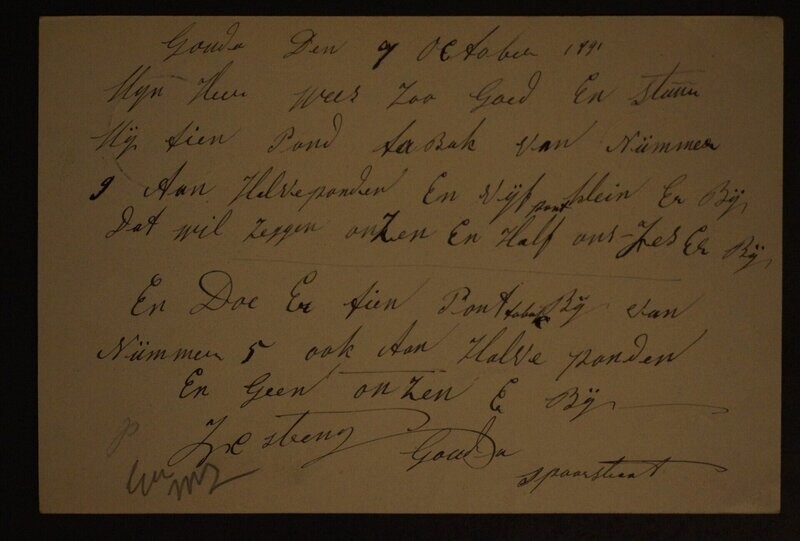 Gouda Den 9 October 1891
Myn Heer wees zoo Goed En stuur
Mÿ tien Pond taBak van Nümmer
9 Aan Halveponden En vÿf pont klein Er Bÿ
Dat wil zeggen onzen En Half ons-jes Er Bÿ
En Doe Er tien Pont tabak Bÿ van
Nümmer 5 ook Aan Halve ponden
En Geen onzen Er Bÿ
Gouda
spoorstraat